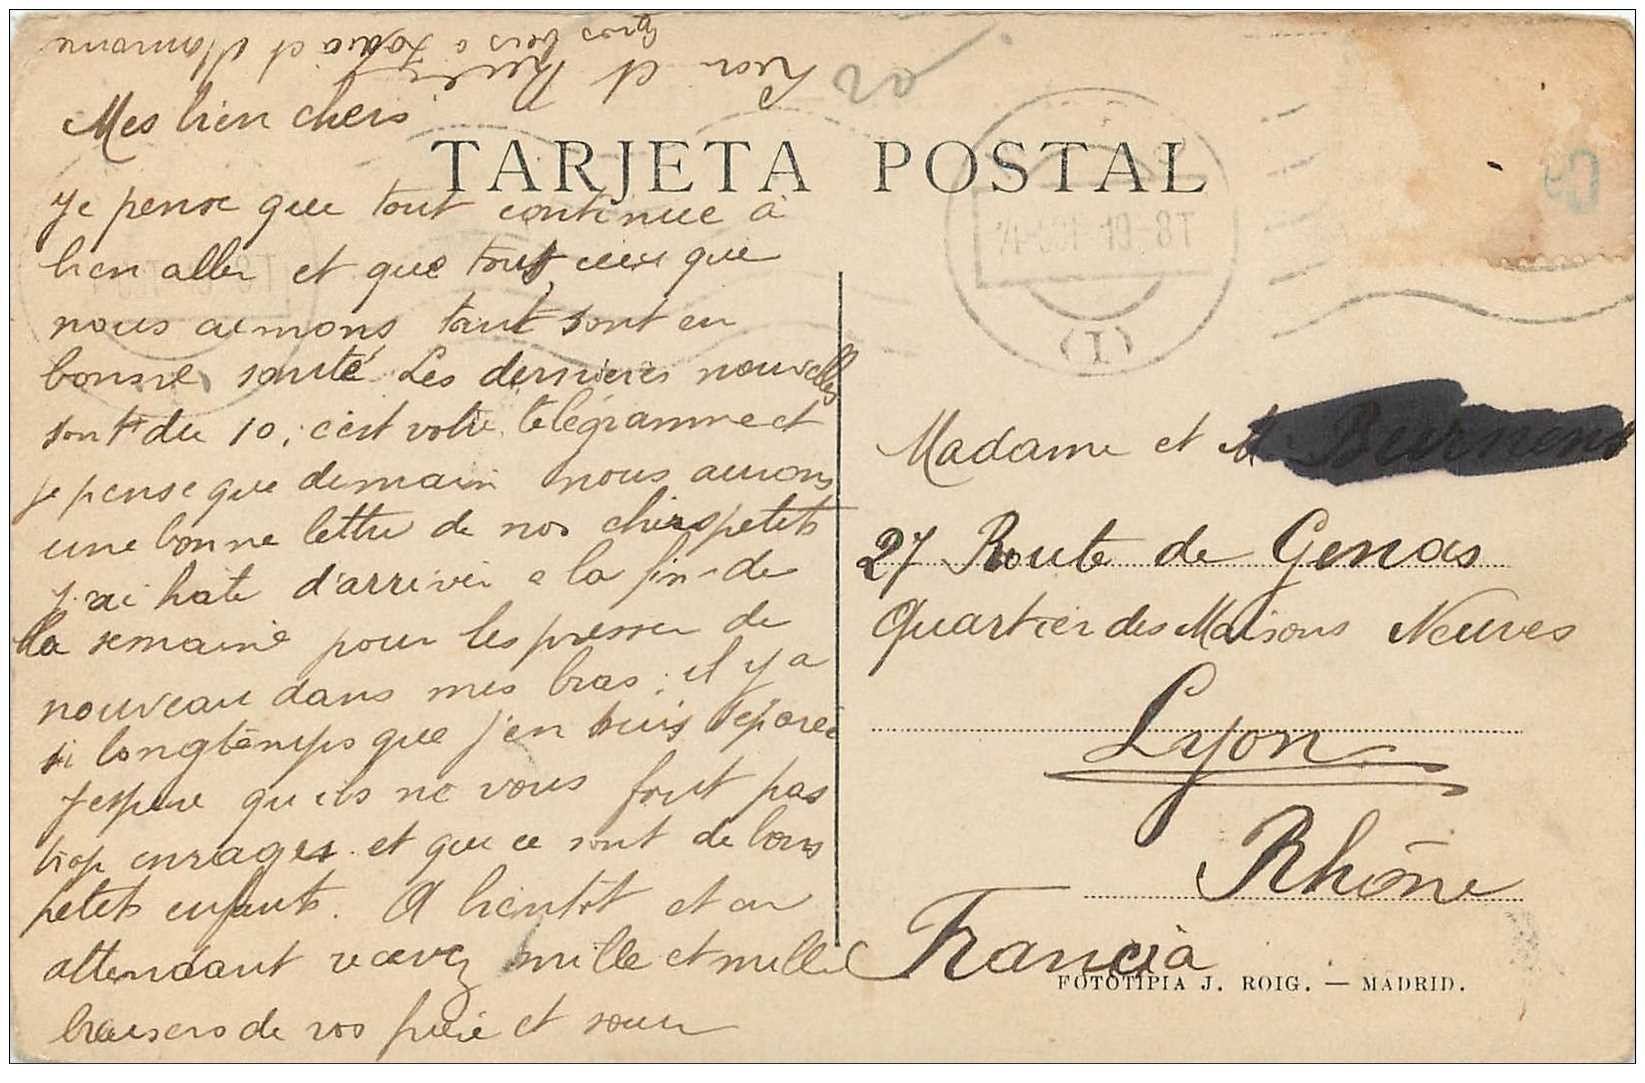 Mes bien chers
TARJETA POSTAL
Je pense que tout continue à
bien aller et que tous ceux que
nous aimons tant sont en
bonne santé Les dernières nouvelles
sont du 10, c'est votre télégramme et
je pense que demain nous aurons
une bonne lettre de nos chers petits
J'ai hate d'arriver a la fin de
la semaine pour les presser de
nouveau dans mes bras; il y a
si longtemps que j'en suis séparée
J'espere qu'ils ne vous font pas
trop enrager et que ce sont de bons
petits enfants. A bientôt et en
attendant recevez mille et mille
baisers de vos frère et soeur
et
Gros bers a et Mamone
(1)
Madame et M
27 Route de Genas
Quartier des Maisons Neuves
Lyon
Rhône
Francia
FOTOTIPIA J. ROIG. — MADRID.